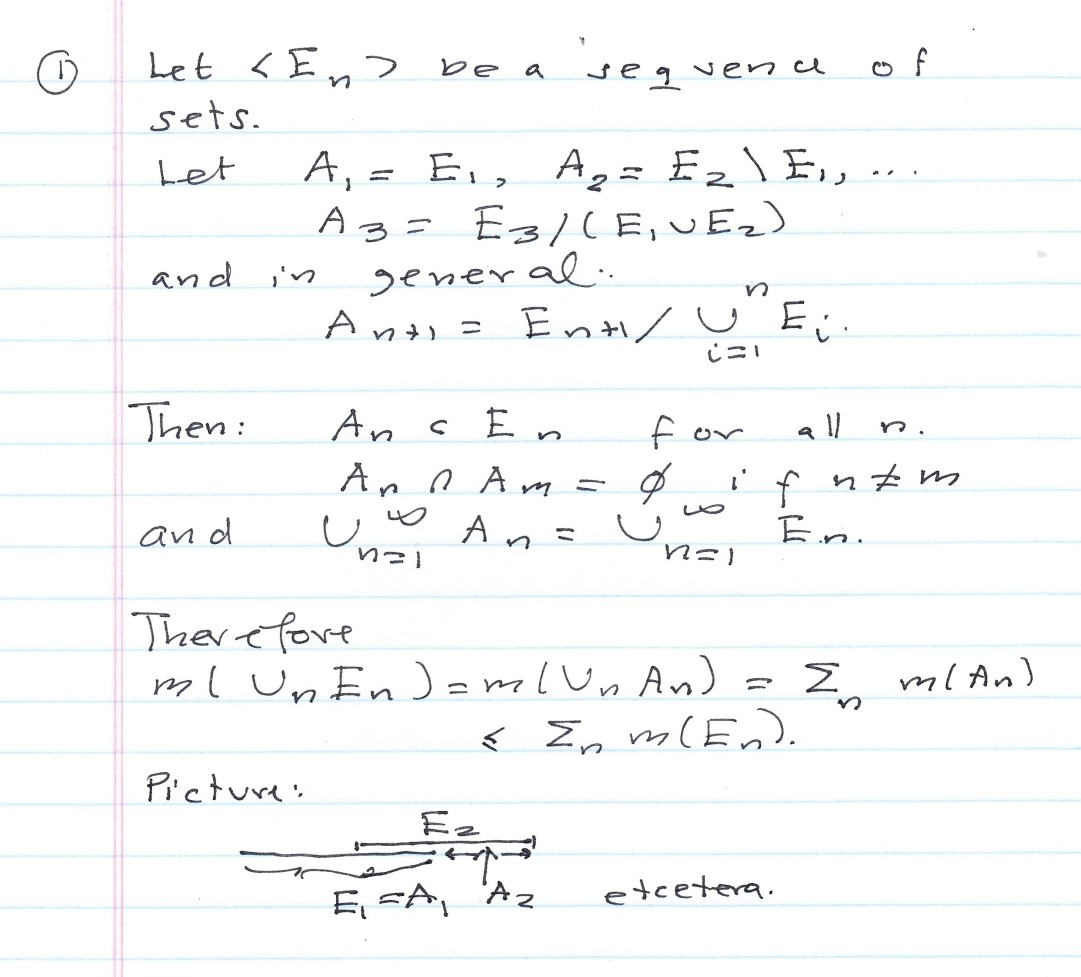 ① Let <Eₙ> be a sequence of
sets.
Let A₁ = E₁, A₂ = E₂ \ E₁, ...
A₃ = E₃ / (E₁ ∪ E₂)
and in general:
Aₙ₊₁ = Eₙ₊₁ / ∪ⁿᵢ₌₁ Eᵢ.
Then: Aₙ ⊂ Eₙ for all n.
Aₙ ∩ Aₘ = ∅ if n ≠ m
and ∪ₙ₌₁^∞ Aₙ = ∪ₙ₌₁^∞ Eₙ.
Therefore
m(∪ₙ Eₙ) = m(∪ₙ Aₙ) = Σₙ m(Aₙ)
≤ Σₙ m(Eₙ).
Picture:
E₂
E₁ = A₁ A₂ etcetera.